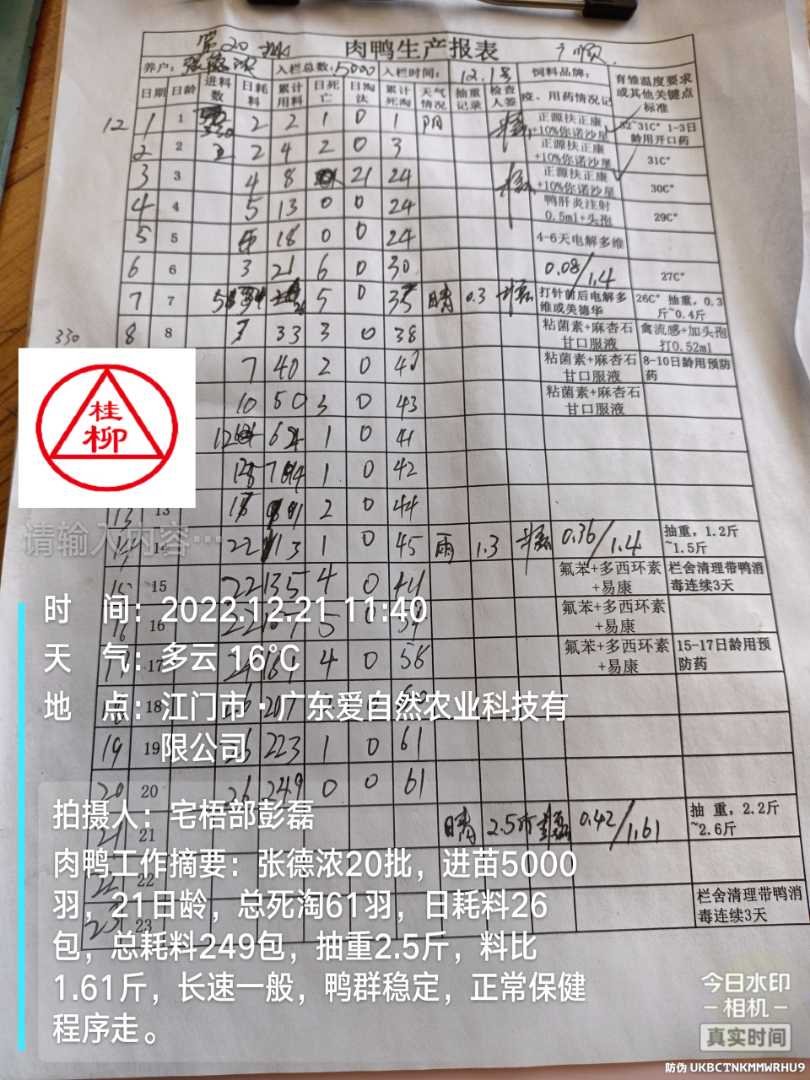 第20批 肉鸭生产报表
养户: 张德浓 入栏总数: 5000 入栏时间: 12.1号 饲料品牌:
日期 日龄 进料数 日耗料 累计用料 日死亡 日淘汰 累计死淘 天气情况 抽重记录 检查人签 疫、用药情况记 育雏温度要求或其他关键点标准
12 1 1 2 2 1 0 1 阴 正源扶正康+10%你诺沙星 32~31C° 1-3日龄用开口药
2 2 2 4 2 0 3 正源扶正康+10%你诺沙星 31C°
3 3 4 8 21 24 正源扶正康+10%你诺沙星 30C°
4 4 5 13 0 0 24 鸭肝炎注射0.5ml+头孢 29C°
5 5 18 0 0 24 4-6天电解多维
6 6 3 21 6 0 30 0.08/1.4 27C°
7 7 5 0 35 晴 0.3 打针前后电解多维或美德华 26C° 抽重,0.3斤~0.4斤
330 8 8 33 3 0 38 粘菌素+麻杏石甘口服液 禽流感+加头孢打0.52ml
7 40 2 0 粘菌素+麻杏石甘口服液 8-10日龄用预防药
10 50 3 0 43 粘菌素+麻杏石甘口服液
12 1 0 41
1 0 42
13 13 2 0 44
14 22 113 1 0 45 雨 1.3 0.36/1.4 抽重,1.2斤~1.5斤
15 22 135 4 0 氟苯+多西环素+易康 栏舍清理带鸭消毒连续3天
16 16 22 氟苯+多西环素+易康
17 4 0 58 氟苯+多西环素+易康 15-17日龄用预防药
18 207
19 19 26 223 1 0 61
20 20 26 249 0 0 61
21 21 晴 2.5斤 0.42/1.61 抽重,2.2斤~2.6斤
22 22
23 23 栏舍清理带鸭消毒连续3天
桂柳
请输入内容…
时 间:2022.12.21 11:40
天 气:多云 16℃
地 点:江门市·广东爱自然农业科技有
限公司
拍摄人:宅梧部彭磊
肉鸭工作摘要:张德浓20批,进苗5000
羽,21日龄,总死淘61羽,日耗料26
包,总耗料249包,抽重2.5斤,料比
1.61斤,长速一般,鸭群稳定,正常保健
程序走。
今日水印
相机
真实时间
防伪 UKBCTNKMMWRHU9